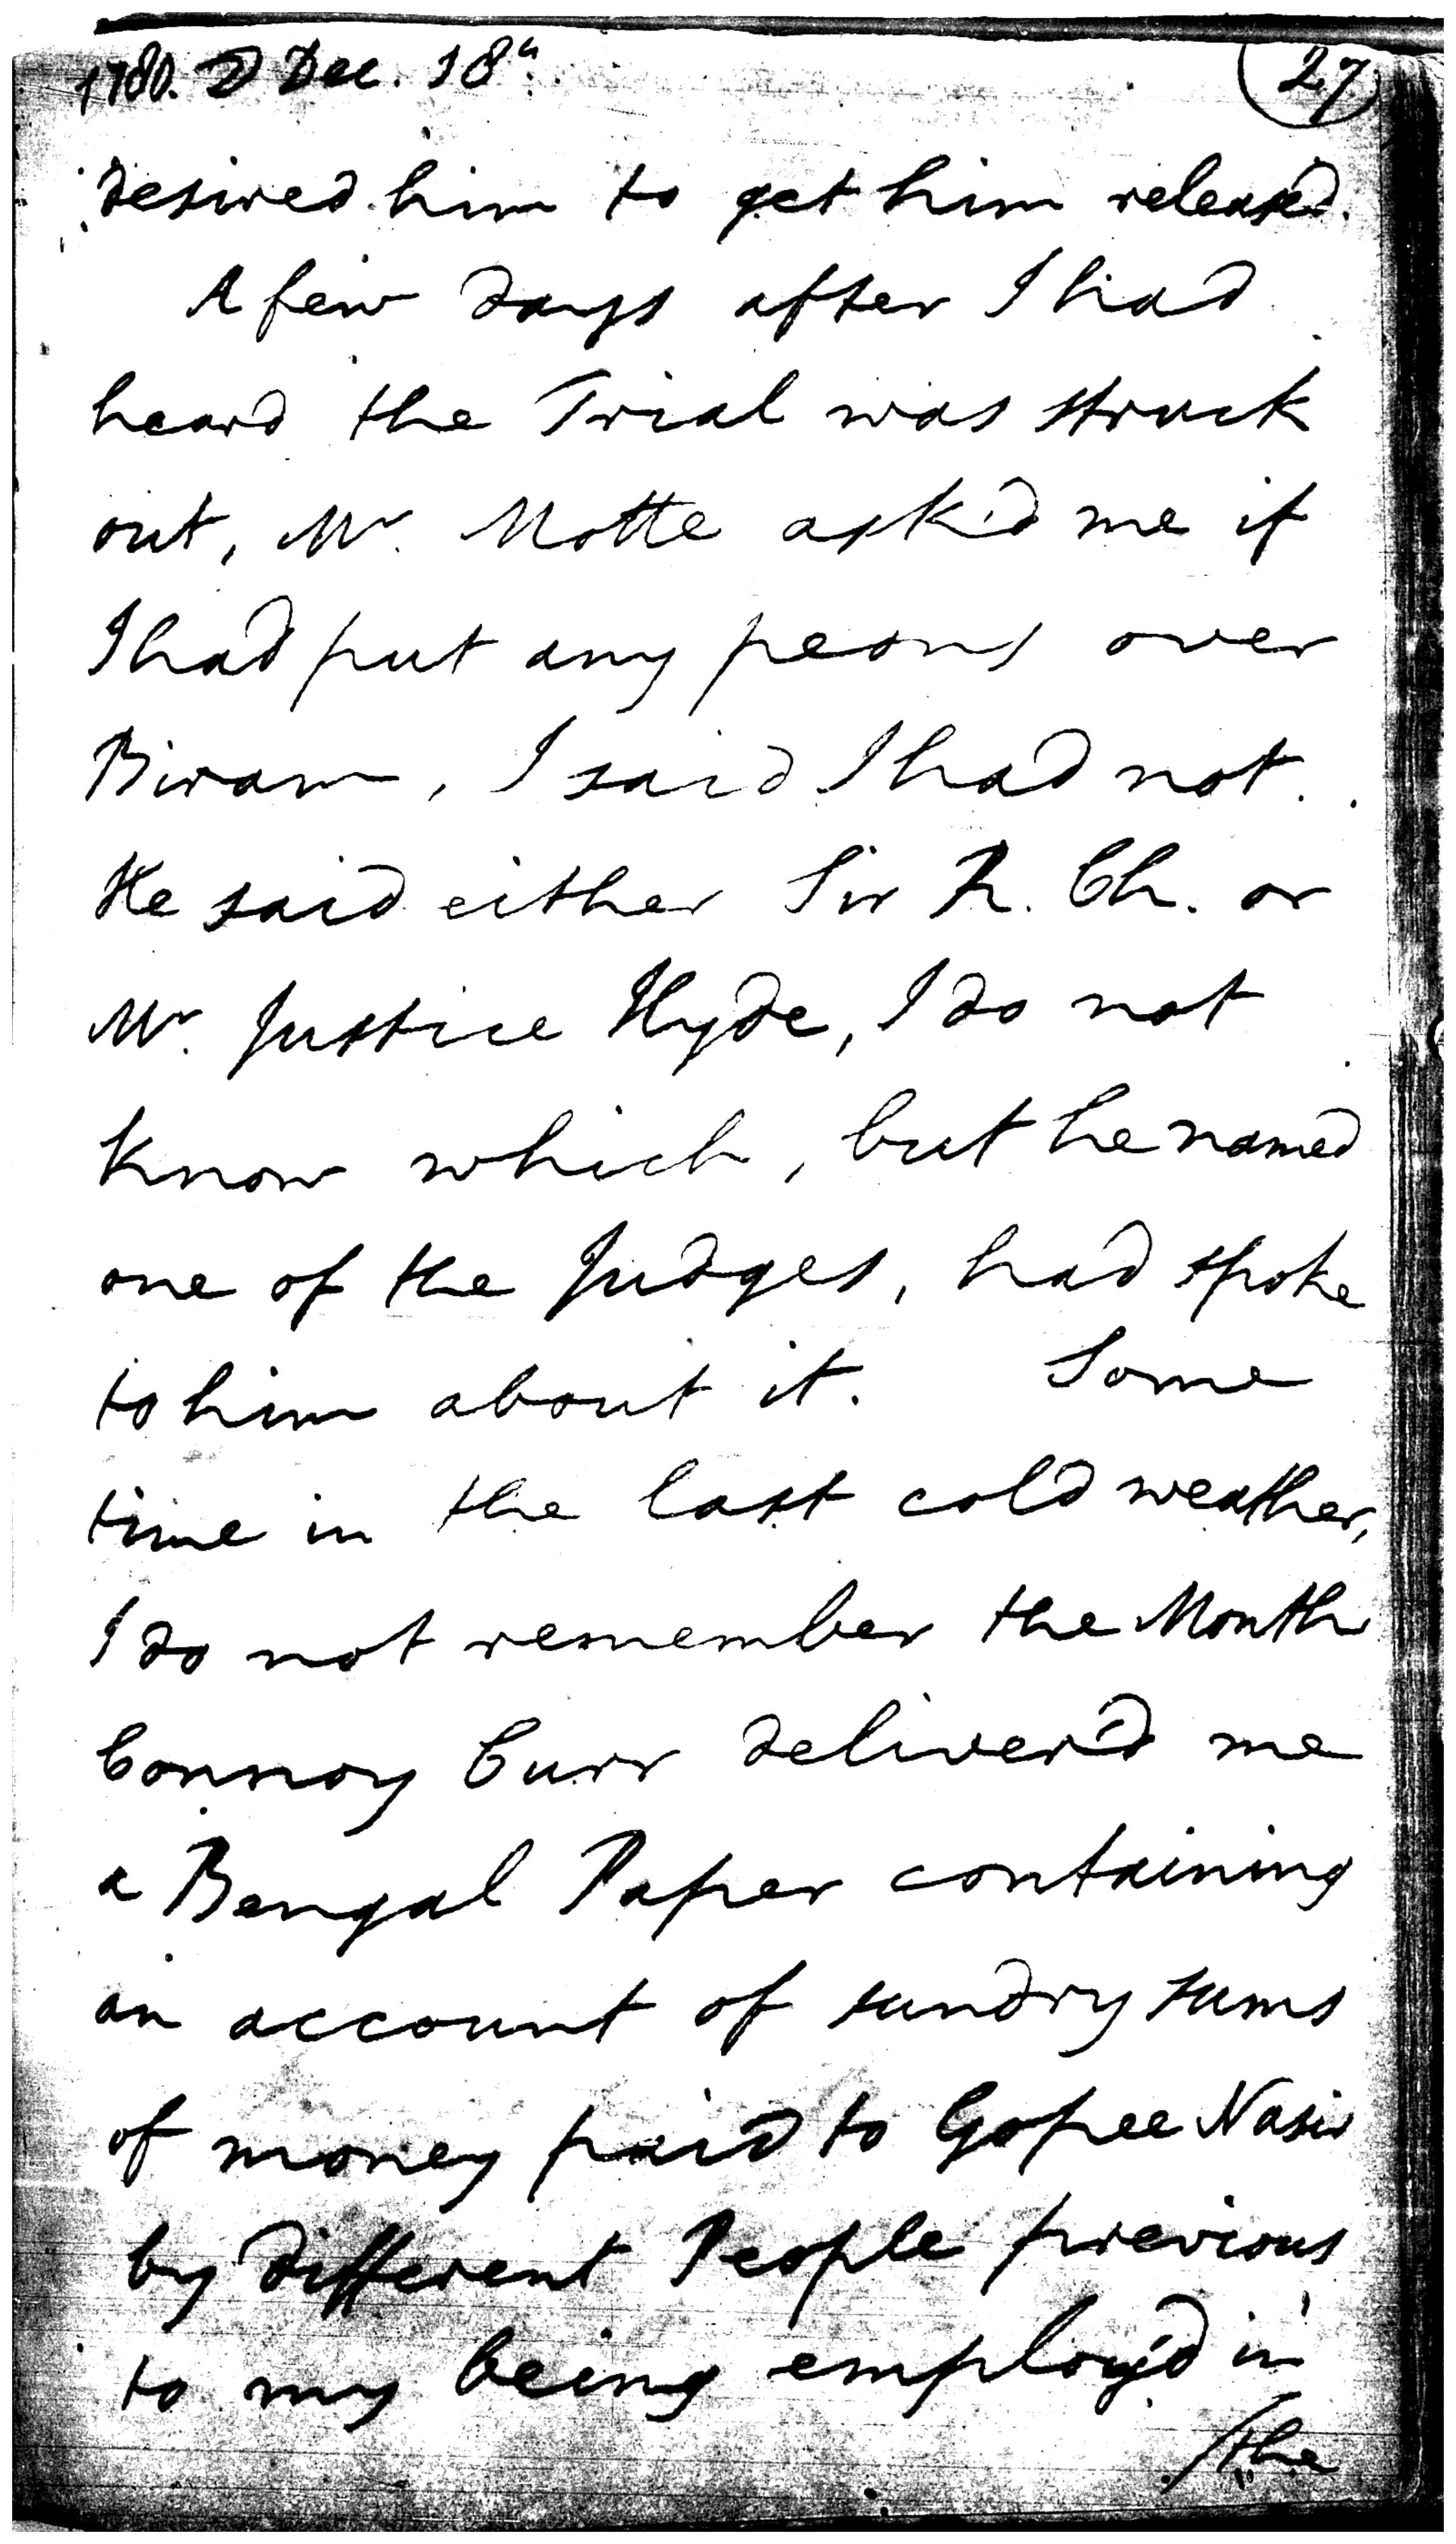 1780. ☽ Dec. 18th 27
desired him to get him released.
A few days after I had
heard the Trial was struck
out, Mr. Motte ask'd me if
I had put any peons over
Biram, I said I had not.
He said either Sir R. Ch. or
Mr. Justice Hyde, I do not
know which, but he named
one of the Judges, had spoke
to him about it. Some
time in the last cold weather,
I do not remember the Month
Connoy Curr deliver'd me
a Bengal Paper containing
an account of sundry sums
of money paid to Gopee Nasir
by different People previous
to my being employ'd in
/the